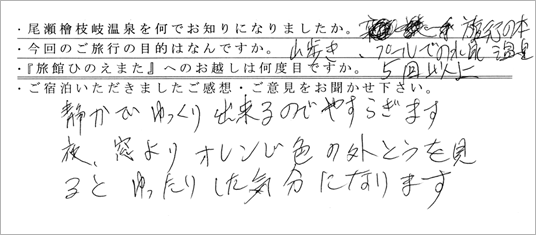 ・尾瀬檜枝岐温泉を何でお知りになりましたか。 旅行の本
・今回のご旅行の目的はなんですか。 山歩き、プールでの水泳 温泉
・『旅館ひのえまた』へのお越しは何度目ですか。 5回以上
・ご宿泊いただきましたご感想・ご意見をお聞かせ下さい。
静かでゆっくり出来るのでやすらぎます
夜、窓よりオレンジ色の外とうを見
るとゆったりした気分になります